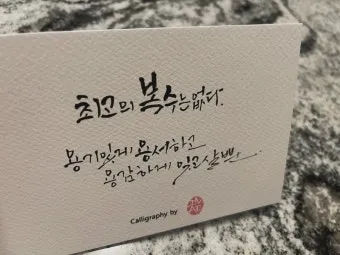 최고의 복수는 없다.
용기있게 용서하고
용감하게 잊고 살 뿐.
Calligraphy by